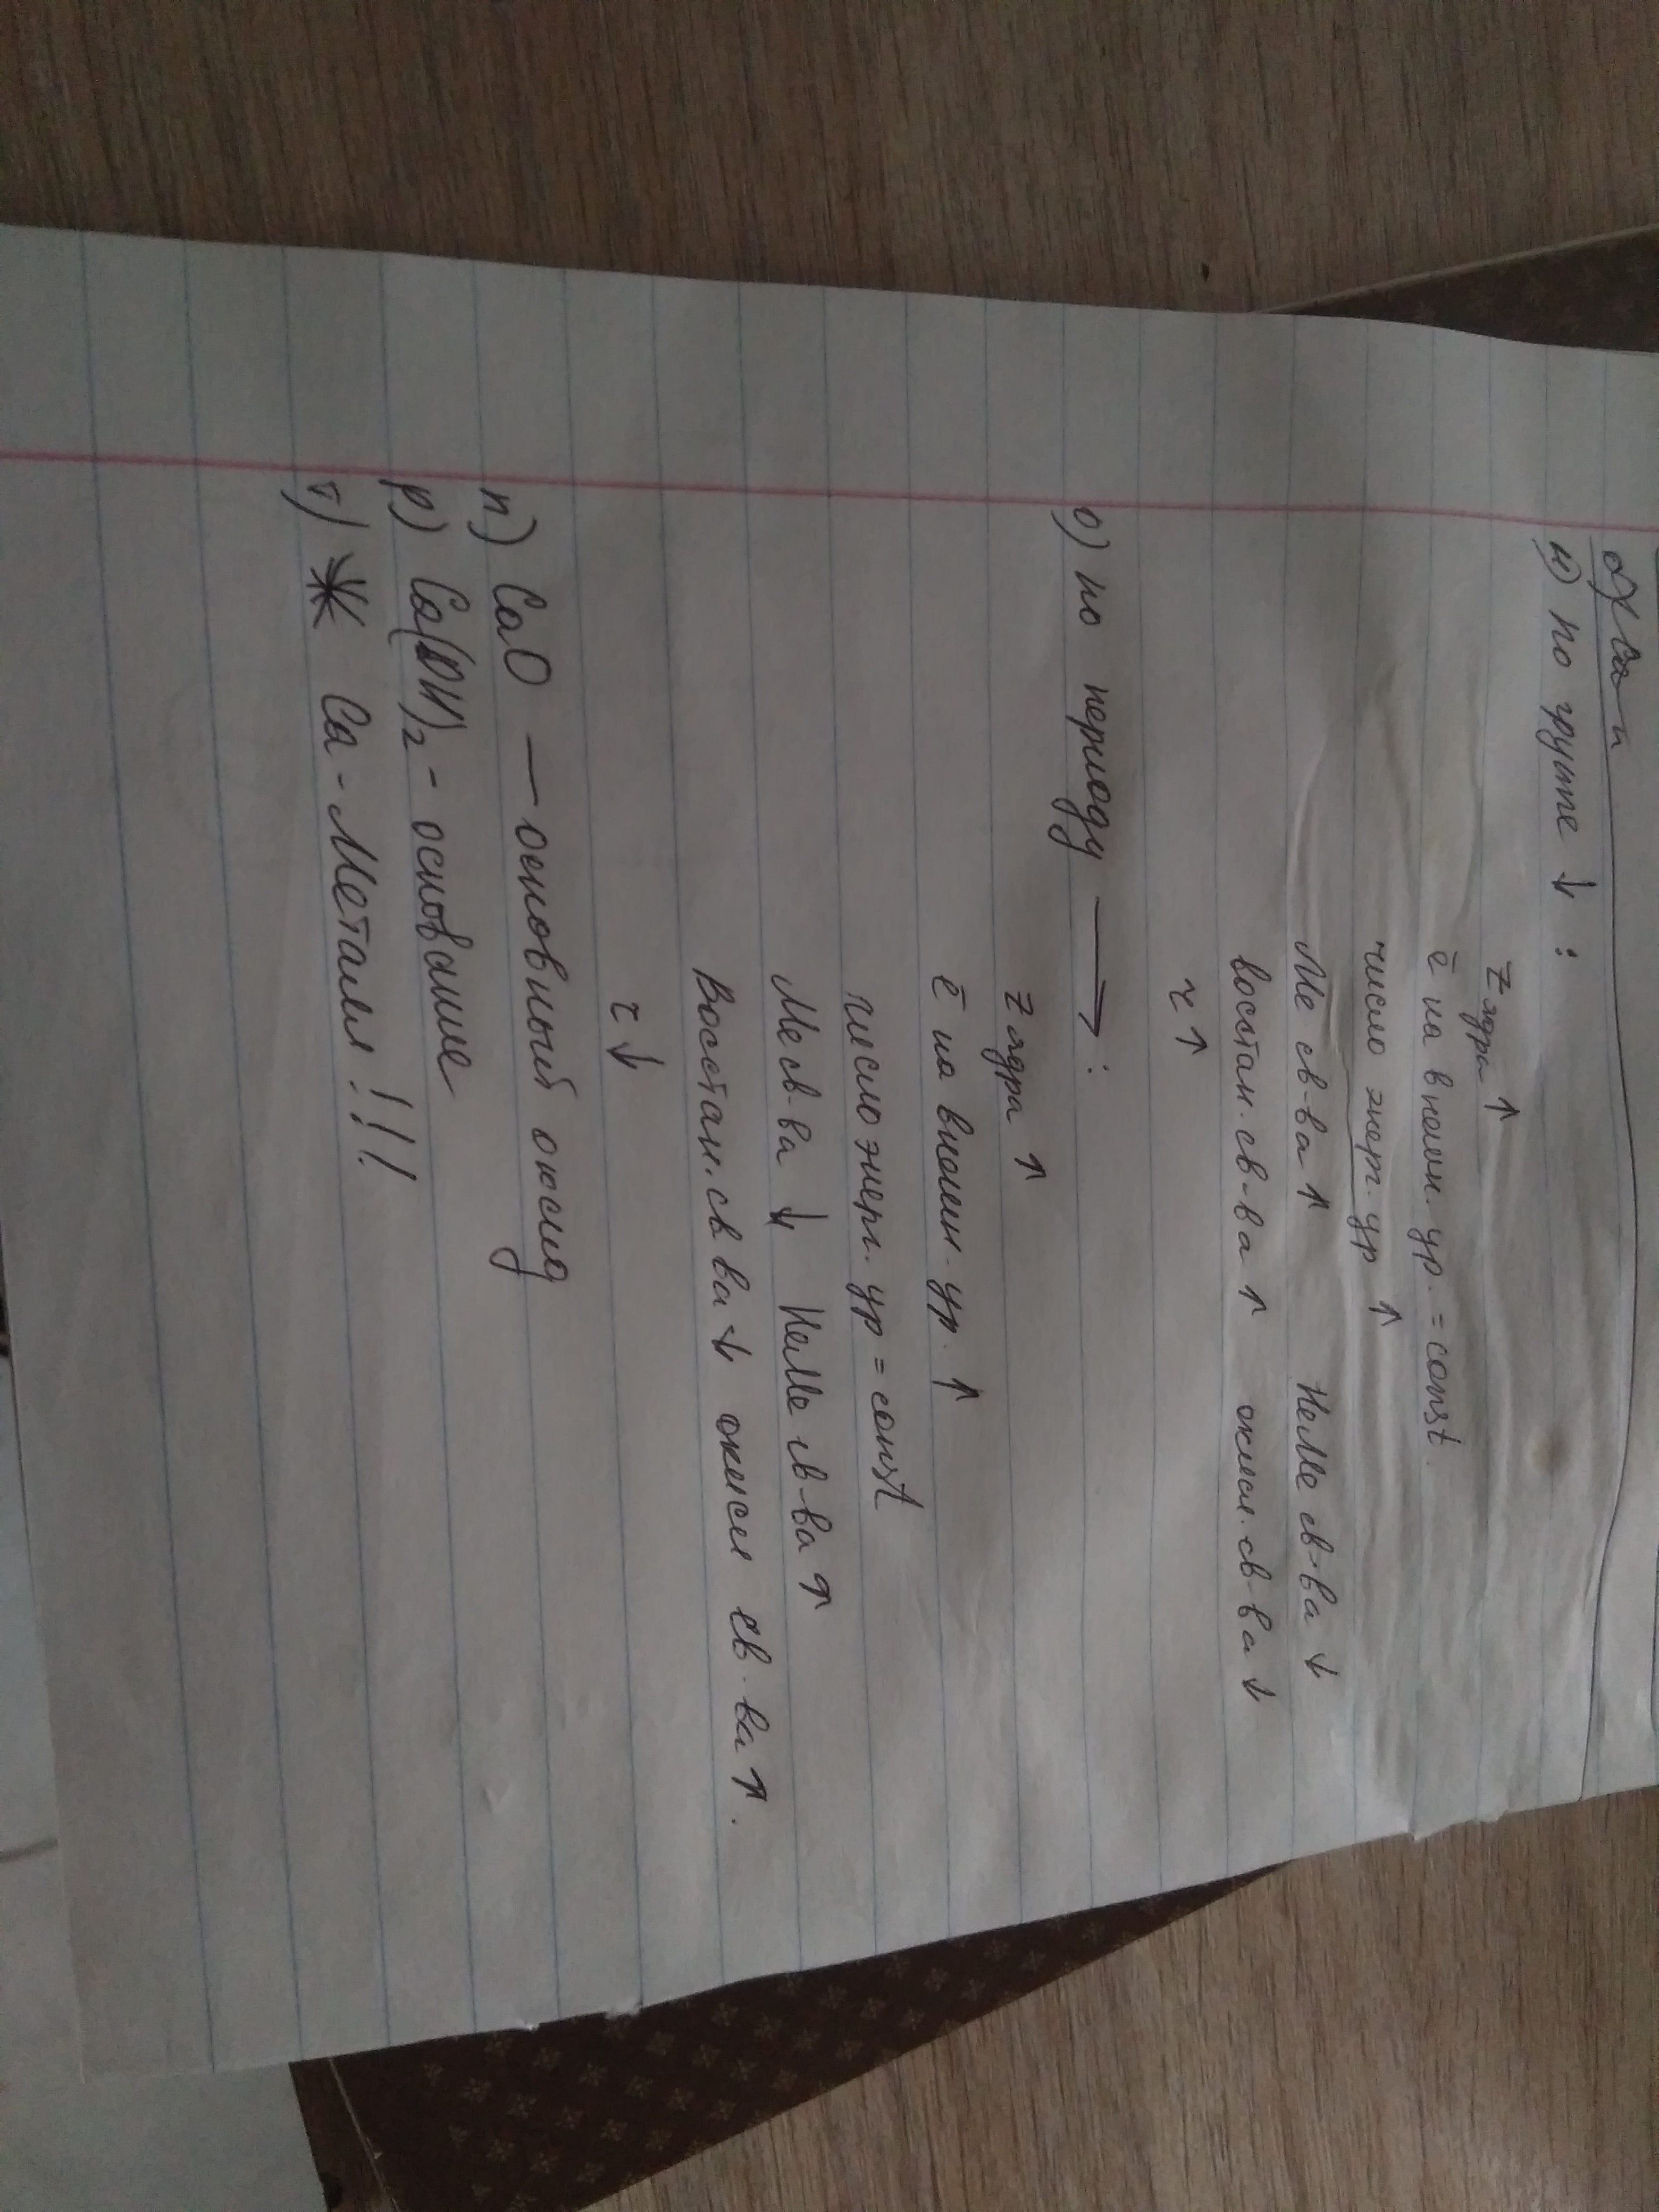 н) по группе ↓ :
Z ядра ↑
ē на внешн. ур. = const.
число энерг. ур ↑
Ме св-ва ↑ НеМе св-ва ↓
восстан. св-ва ↑ окисл. св-ва ↓
r ↑
о) по периоду → :
Z ядра ↑
ē на внешн. ур. ↑
число энерг. ур = const
Ме св-ва ↓ НеМе св-ва ↑
Восстан. св ва ↓ окисл св-ва ↑.
r ↓
п) CaO — основный оксид
р) Ca(OH)₂ - основание
т) Ca - Металл!!!